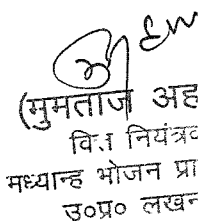 (मुमताज अह
वित्त नियंत्रक
मध्यान्ह भोजन प्रा
उ०प्र० लखन